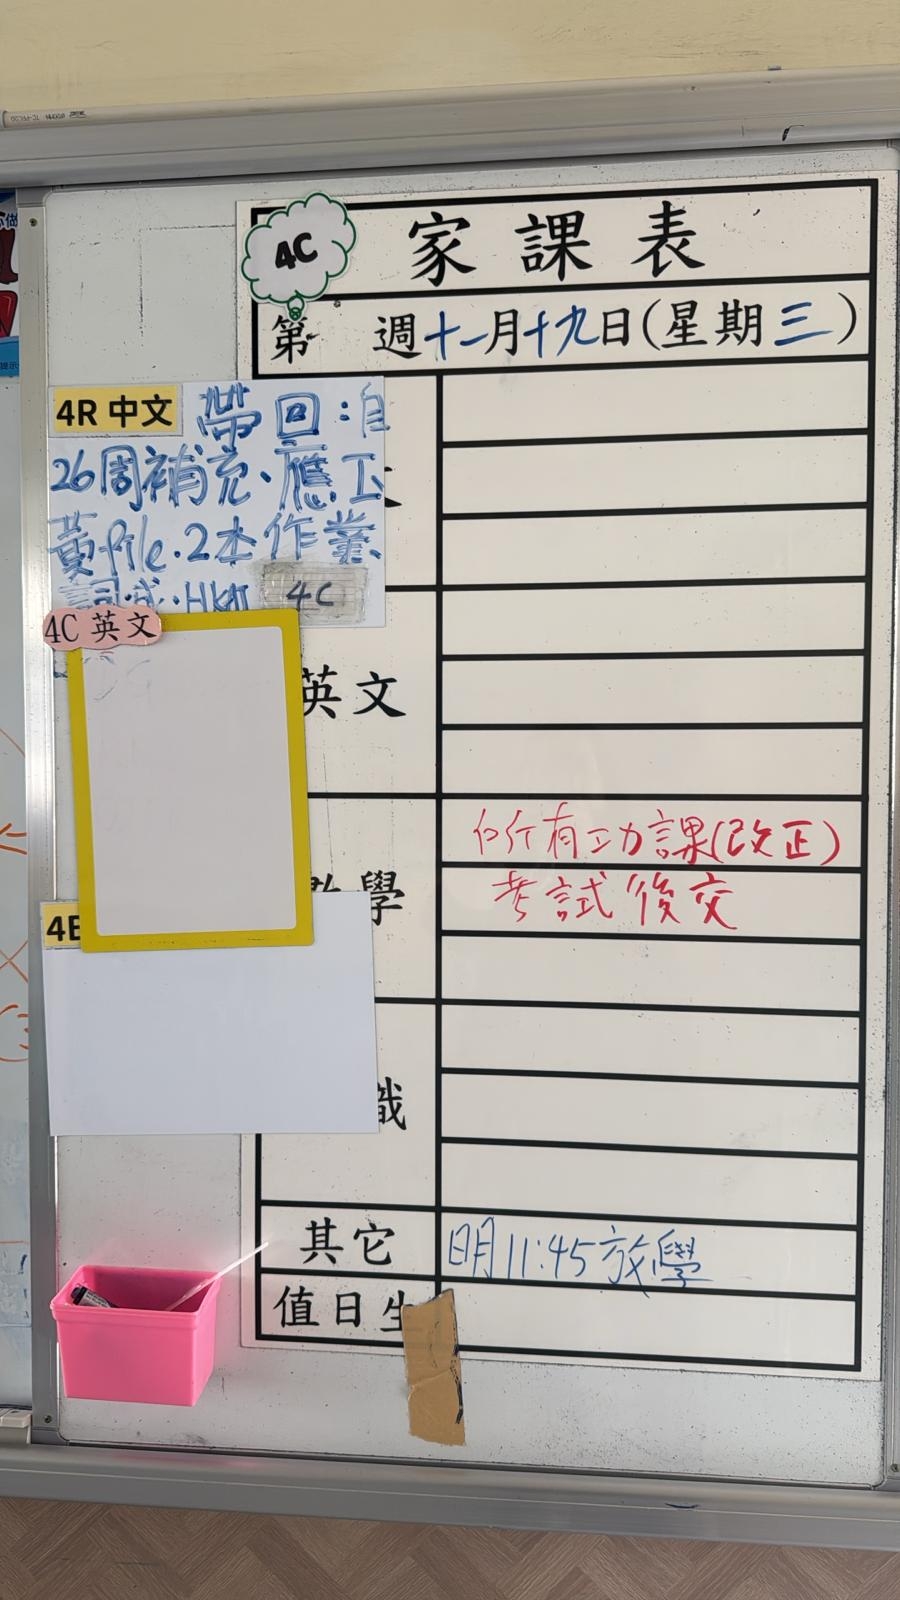 4C
家課表
第 週十一月十九日(星期三)
4R 中文
帶回:自
26周補充、應工
黃file.2本作業、
4C
4C 英文
英文
所有功課(改正)
考試後交
學
4E
識
其它
明11:45放學
值日生